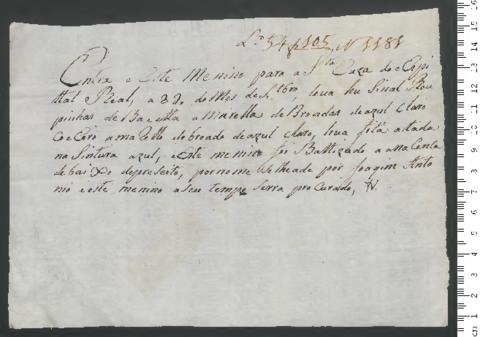 L.º 54 f 105, N 1181
Entra e Este Menino para a S.ta Caza do Ospi
thal Real, a 8 do Mes de 7bro, leua hu Sinal Rou
pinhas de Baeta a Marella de Broadas de azul Claro
de broado de azul claro, leua fita atada
na Sintura azul, e Este menino foi Battizado a
debaixo do prezente, por nome por Joaqim Anto
nio e este menino a seu tempo Serra procurado,